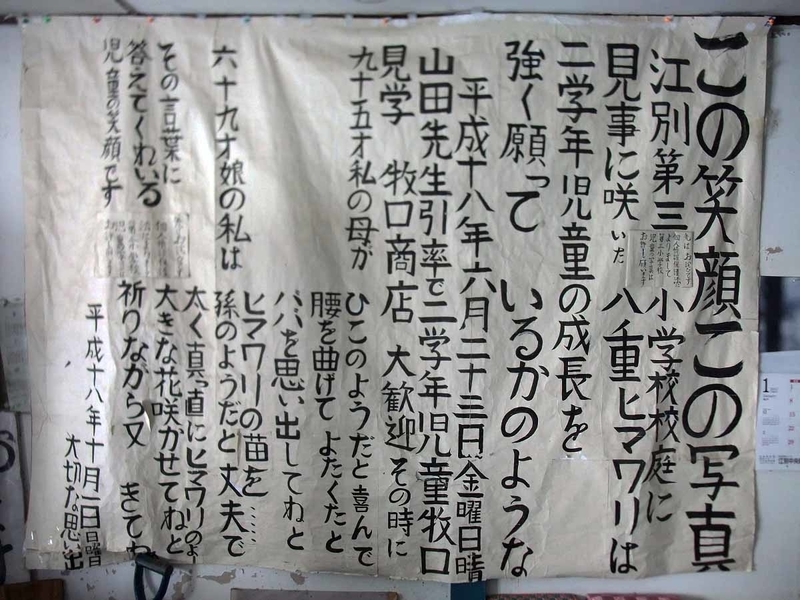 この笑顔この写真
江別第三小学校校庭に
見事に咲いた八重ヒマワリは
二学年児童の成長を
強く願っているかのような
平成十八年六月二十三日金曜日晴
山田先生引率で二学年児童牧口
見学 牧口商店 大歓迎その時に
九十五才私の母が ひこのようだと喜んで
腰を曲げてよたくたと
パパを思い出してねと
ヒマワリの苗を……
六十九才娘の私は 孫のようだと丈夫で
太く真っ直にヒマワリのよ
その言葉に 大きな花咲かせてねと
答えてくれいる 祈りながら又 きてね
児童の笑顔です
平成十八年十月一日日曜日
大切な思い出